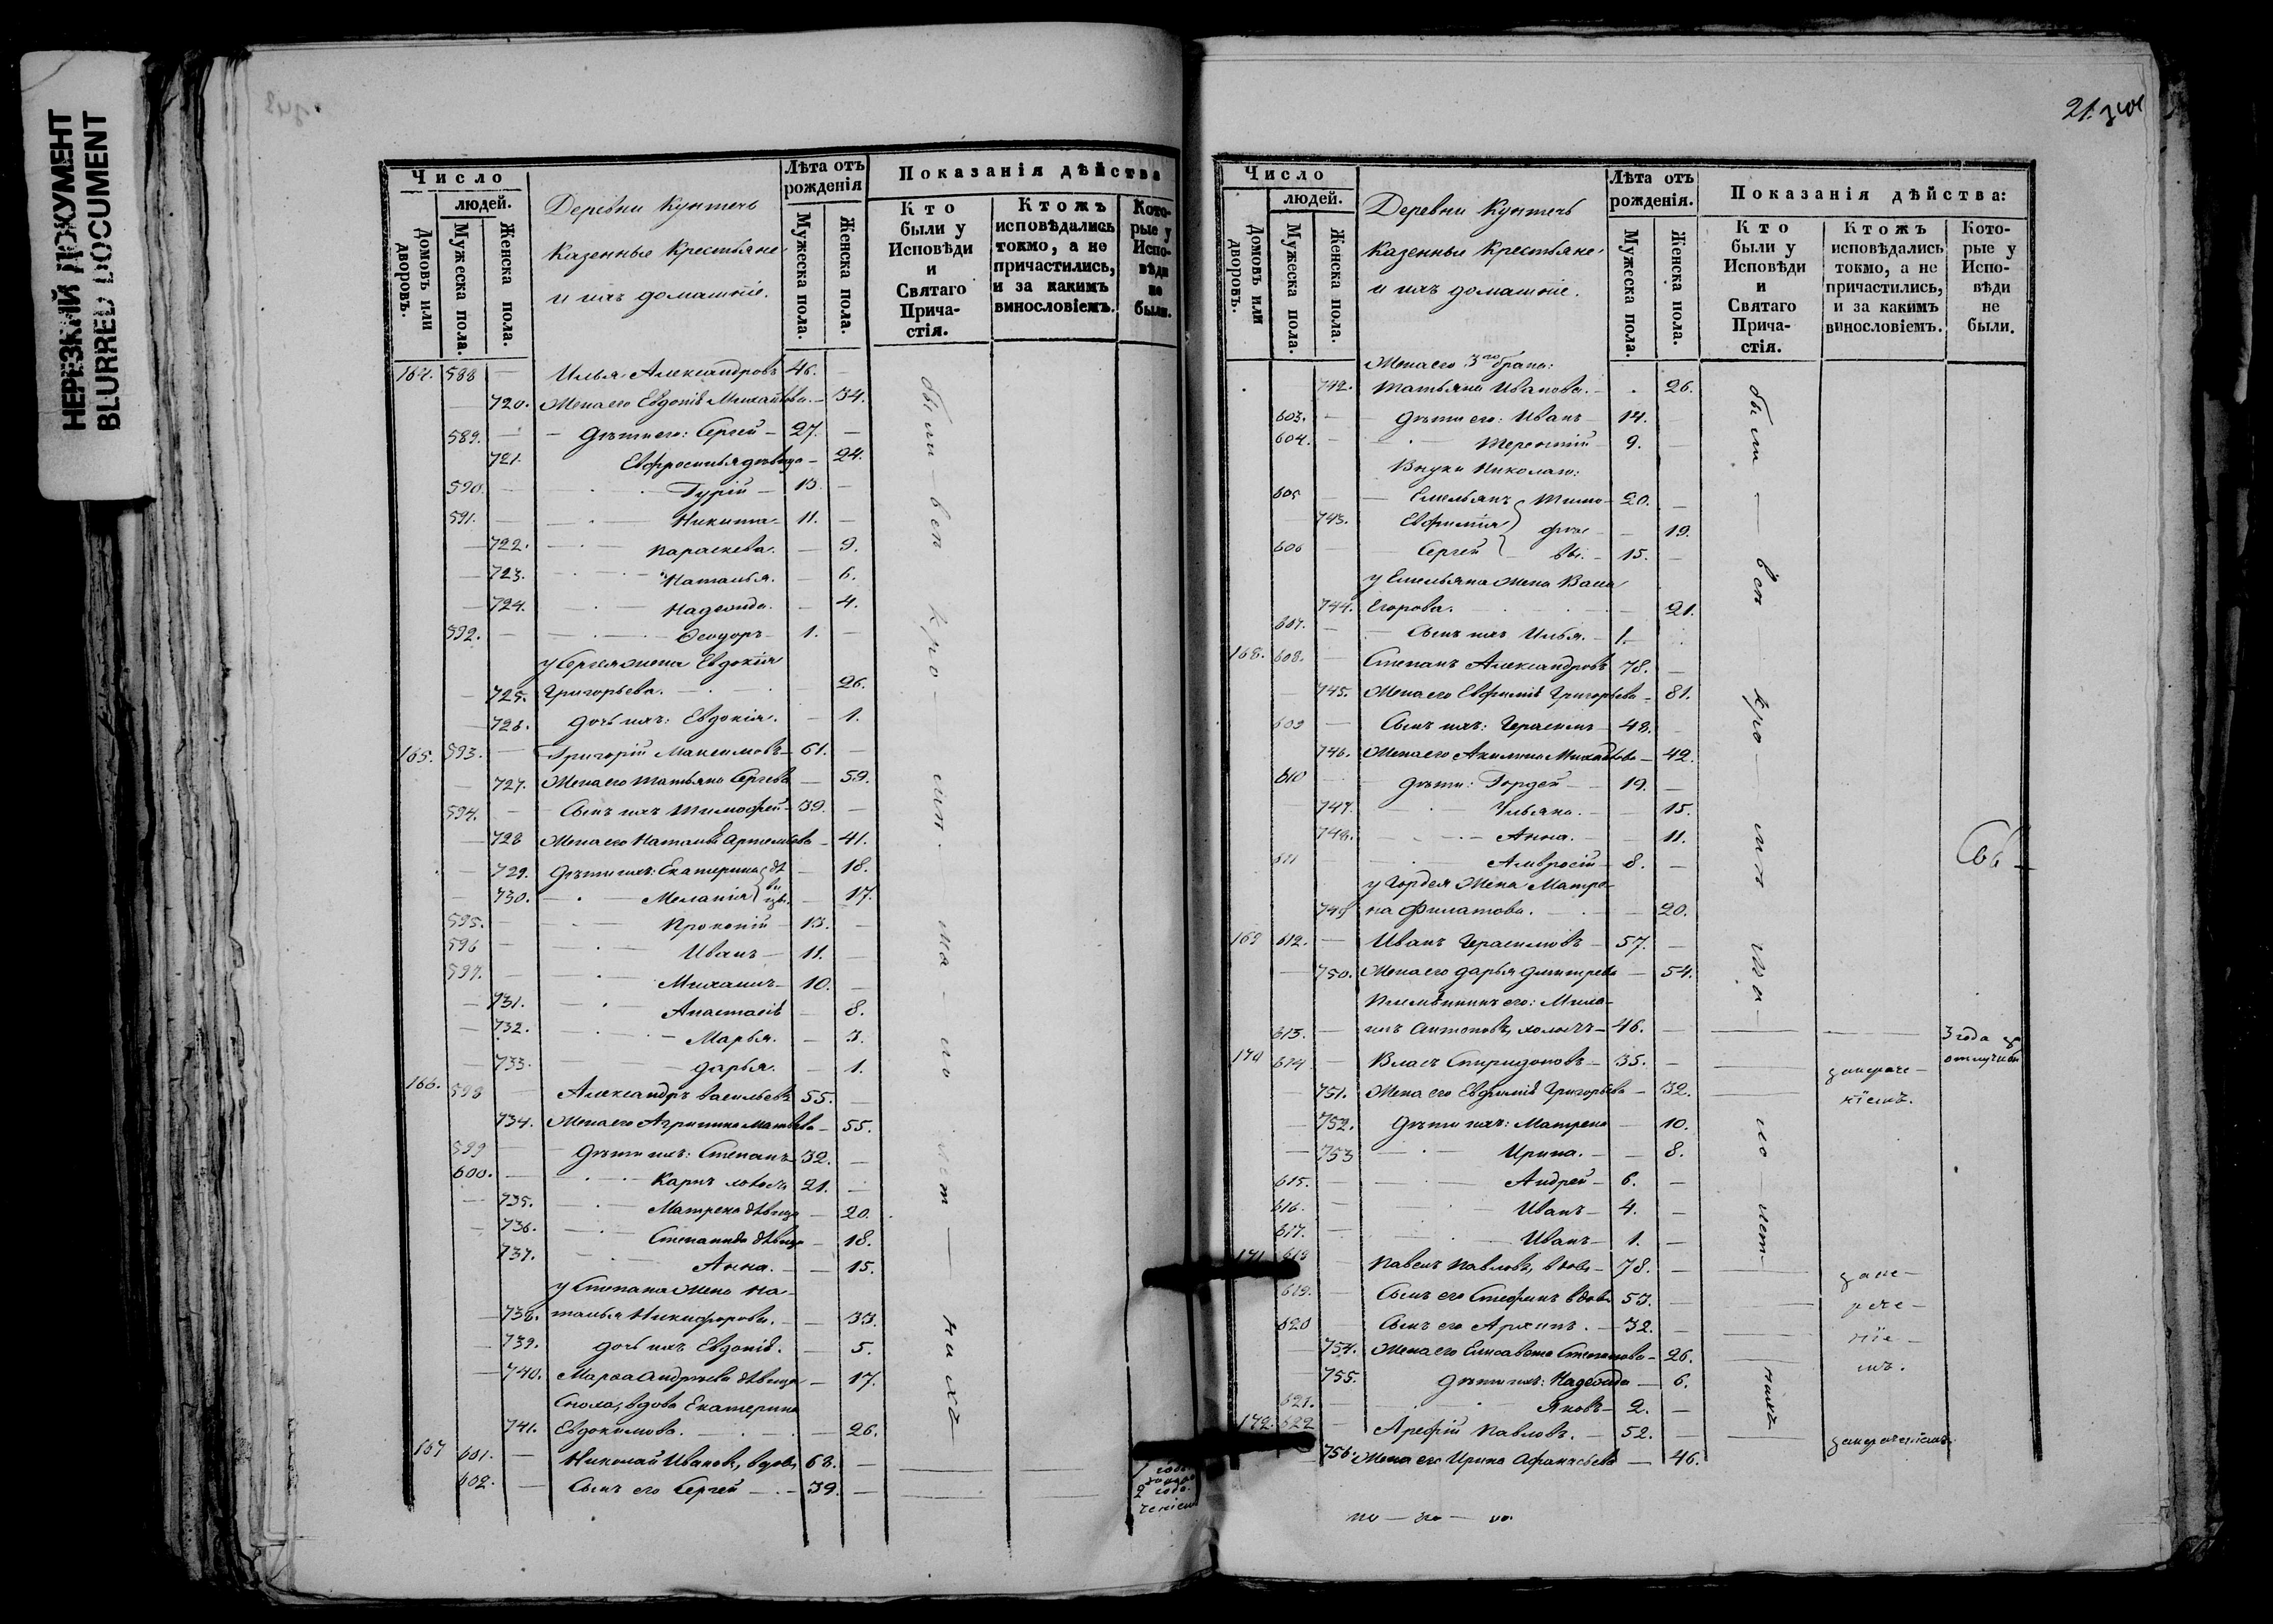 НЕРЕЗКИЙ ДОКУМЕНТ
BLURRED DOCUMENT
Число
людей.
Домовъ или дворовъ.
Мужеска пола.
Женска пола.
Деревни
казенные крестьяне
и ихъ домашніе.
Лѣта отъ рожденія
Мужеска пола.
Женска пола.
Показанія дѣйства
Кто были у Исповѣди и Святаго Причастія.
Ктожъ исповѣдались токмо, а не причастились, и за какимъ винословіемъ.
Которые у Исповѣди не были.
588 — Илья Александровъ 46. —
— 720. Жена его Евдокія Михайлова — 34.
589. — Дѣти его: Сергей — 27. —
721. Евфросинья дѣвица — 24.
590. — Гурій — 13. —
591. — Никита — 11. —
— 722. Параскева. — 9.
— 723. Наталья. — 6.
— 724. Надежда. — 4.
592. — Ѳеодоръ — 1. —
у Сергея жена Евдокія
— 725. Григорьева. — 26.
— 726. дочь ихъ: Евдокія. — 1.
165. 593. — Григорій Максимовъ — 61. —
— 727. Жена его Татьяна Сергѣева — 59.
594. — Сынъ ихъ Тимофей — 39. —
— 728 Жена его Наталья Артемьева — 41.
— 729. Дѣти ихъ: Екатерина — 18.
— 730. Меланія — 17.
дѣвицы.
595. — Прокопій — 13. —
596 — Иванъ — 11. —
597. — Михаилъ — 10. —
— 731. Анастасія — 8.
— 732. Марья. — 3.
— 733. Дарья. — 1.
166. 598 — Александръ Васильевъ 55. —
— 734. Жена его Агрипина Матвѣева — 55.
599 — Дѣти ихъ: Степанъ 32. —
600. — Карпъ холостъ 21. —
— 735. Матрена дѣвица — 20.
— 736. Степанида дѣвица — 18.
737. Анна. — 15.
у Степана жена На-
— 738. талья Никифорова. — 33.
— 739. дочь ихъ Евдокія. — 5.
— 740. Марѳа Андреева дѣвица — 17.
Сноха, вдова Екатерина
741. Евдокимова. — 26.
167 601. — Николай Ивановъ, вдовъ 68. —
602. — Сынъ его Сергей — 39. —
были — всѣ
21.
Число
людей.
Домовъ или дворовъ.
Мужеска пола.
Женска пола.
Деревни
казенные крестьяне
и ихъ домашніе.
Лѣта отъ рожденія.
Мужеска пола.
Женска пола.
Показанія дѣйства:
Кто были у Исповѣди и Святаго Причастія.
Ктожъ исповѣдались токмо, а не причастились, и за какимъ винословіемъ.
Которые у Исповѣди не были.
Жена его 3го брака:
742. Татьяна Иванова. — 26.
603. — Дѣти его: Иванъ — 14.
604. — Терентій — 9. —
Внуки Николаю:
605 — Емельянъ — 20. —
— 743. Евфимія — 19.
606 — Сергей — 15. —
Тимо-
фее-
вы.
у Емельяна жена Васса
744. Егорова. — 21.
607. — Сынъ ихъ Илья. — 1.
168. 608. — Степанъ Александровъ 78. —
— 745. Жена его Евфимія Григорьева — 81.
609 — Сынъ ихъ: Герасимъ — 48.
746. Жена его Акилина Михайлова — 42.
610 — Дѣти: Гордей — 19. —
747. Ульяна. — 15.
748. Анна. — 11.
611 Амвросій — 8. —
у Гордея жена Матре-
749 на Филатова. — 20.
169 612. — Иванъ Герасимовъ — 57. —
— 750. Жена его Дарья Дмитрева — 54.
Племянникъ его: Миха-
613. — илъ Антоновъ, холостъ — 46. —
3 года за отлучкой
170 614 — Власъ Спиридоновъ — 35. —
— 751. Жена его Евфимія Григорьева — 32.
— 752. Дѣти ихъ: Матрена — 10.
— 753 Ирина. — 8.
615. — Андрей — 6. —
616. — Иванъ — 4. —
617. — Иванъ — 1. —
171 618 — Павелъ Павловъ, вдовъ — 78. —
619. — Сынъ его Стефанъ вдовъ 53. —
620 — Сынъ его Архипъ. — 32. —
754. Жена его Елисавета Степанова — 26.
755. Дѣти ихъ: Надежда — 6.
621. — Яковъ — 2. —
172. 622 — Арефій Павловъ. — 52. —
756. Жена его Ирина Афанасьева — 46.
были — всѣ